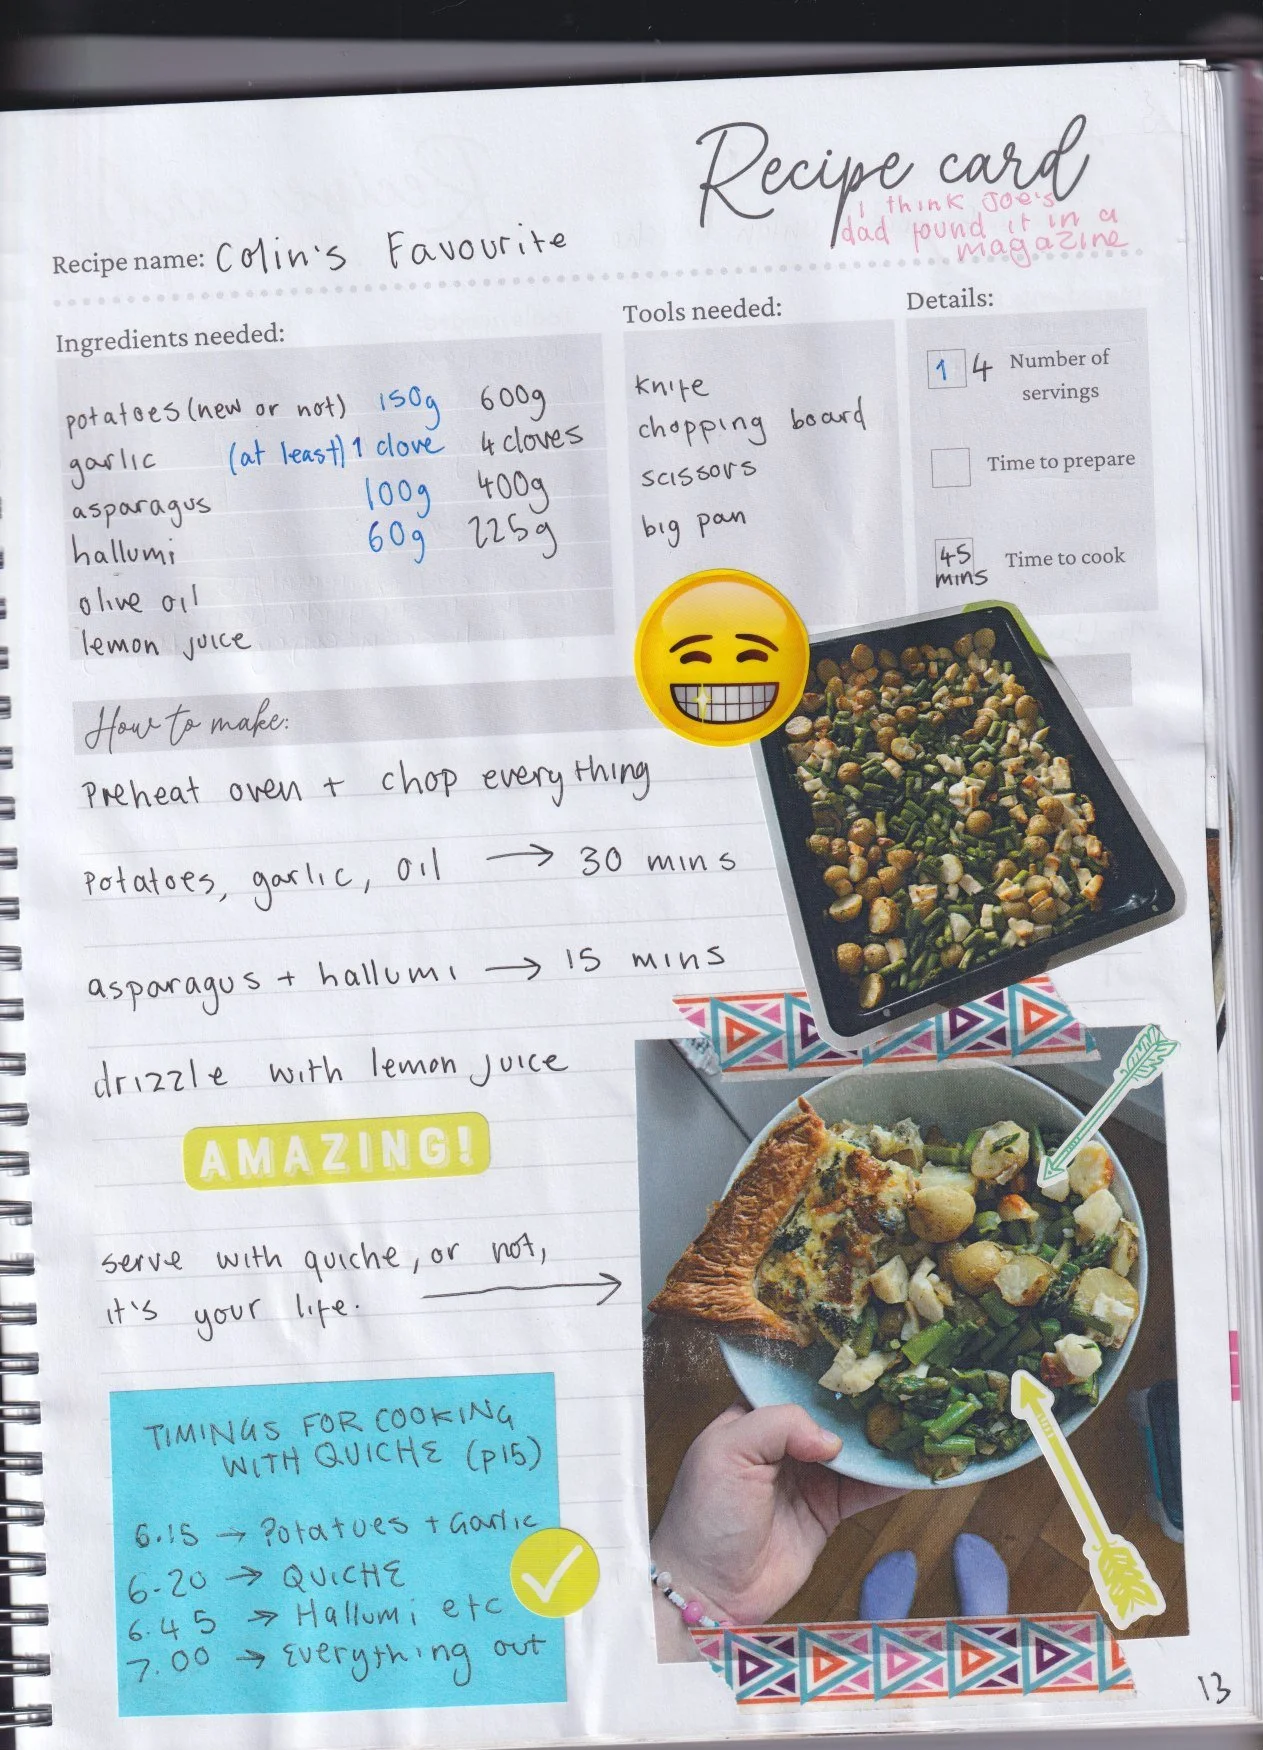 Recipe card
I think Joe's
dad found it in a
magazine
Recipe name: Colin's Favourite
Ingredients needed:
potatoes (new or not) 150g 600g
garlic (at least) 1 clove 4 cloves
asparagus 100g 400g
hallumi 60g 225g
olive oil
lemon juice
Tools needed:
knife
chopping board
scissors
big pan
Details:
1 4 Number of
servings
Time to prepare
45
mins Time to cook
How to make:
Preheat oven + chop everything
potatoes, garlic, oil → 30 mins
asparagus + hallumi → 15 mins
drizzle with lemon juice
AMAZING!
serve with quiche, or not,
it's your life. →
TIMINGS FOR COOKING
WITH QUICHE (p15)
6.15 → Potatoes + Garlic
6.20 → QUICHE
6.45 → Hallumi etc
7.00 → Everything out
13